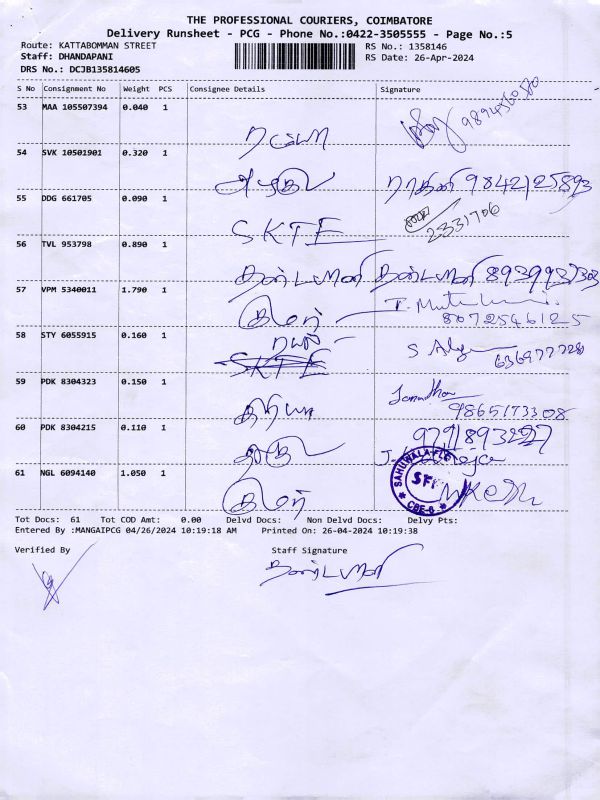 THE PROFESSIONAL COURIERS, COIMBATORE
Delivery Runsheet - PCG - Phone No.:0422-3505555 - Page No.:5
Route: KATTABOMMAN STREET RS No.: 1358146
Staff: DHANDAPANI RS Date: 26-Apr-2024
DRS No.: DCJB135814605
S No Consignment No Weight PCS Consignee Details Signature
53 MAA 105507394 0.040 1
54 SVK 10501901 0.320 1
9842125893
55 DDG 661705 0.090 1
SKTE 2331706
56 TVL 953798 0.890 1
தண்டபாணி தண்டபாணி
57 VPM 5340011 1.790 1
8072546125
58 STY 6055915 0.160 1
SKTE
59 PDK 8304323 0.150 1
பிரியா 9865173308
60 PDK 8304215 0.110 1
61 NGL 6094140 1.050 1
SAHUWALA FLO
SFM
CBE-6
Tot Docs: 61 Tot COD Amt: 0.00 Delvd Docs: Non Delvd Docs: Delvy Pts:
Entered By :MANGAIPCG 04/26/2024 10:19:18 AM Printed On: 26-04-2024 10:19:38
Verified By Staff Signature
தண்டபாணி